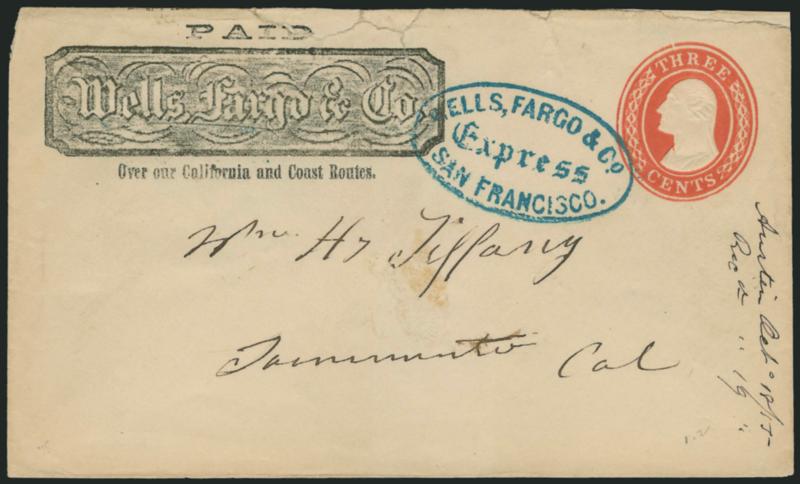 PAID
Wells, Fargo & Co.
Over our California and Coast Routes.
WELLS, FARGO & Co
Express
SAN FRANCISCO.
THREE
CENTS
Wm Hy Tiffany
Sacramento
Cal
Austin Oct
Rec d " 19 "